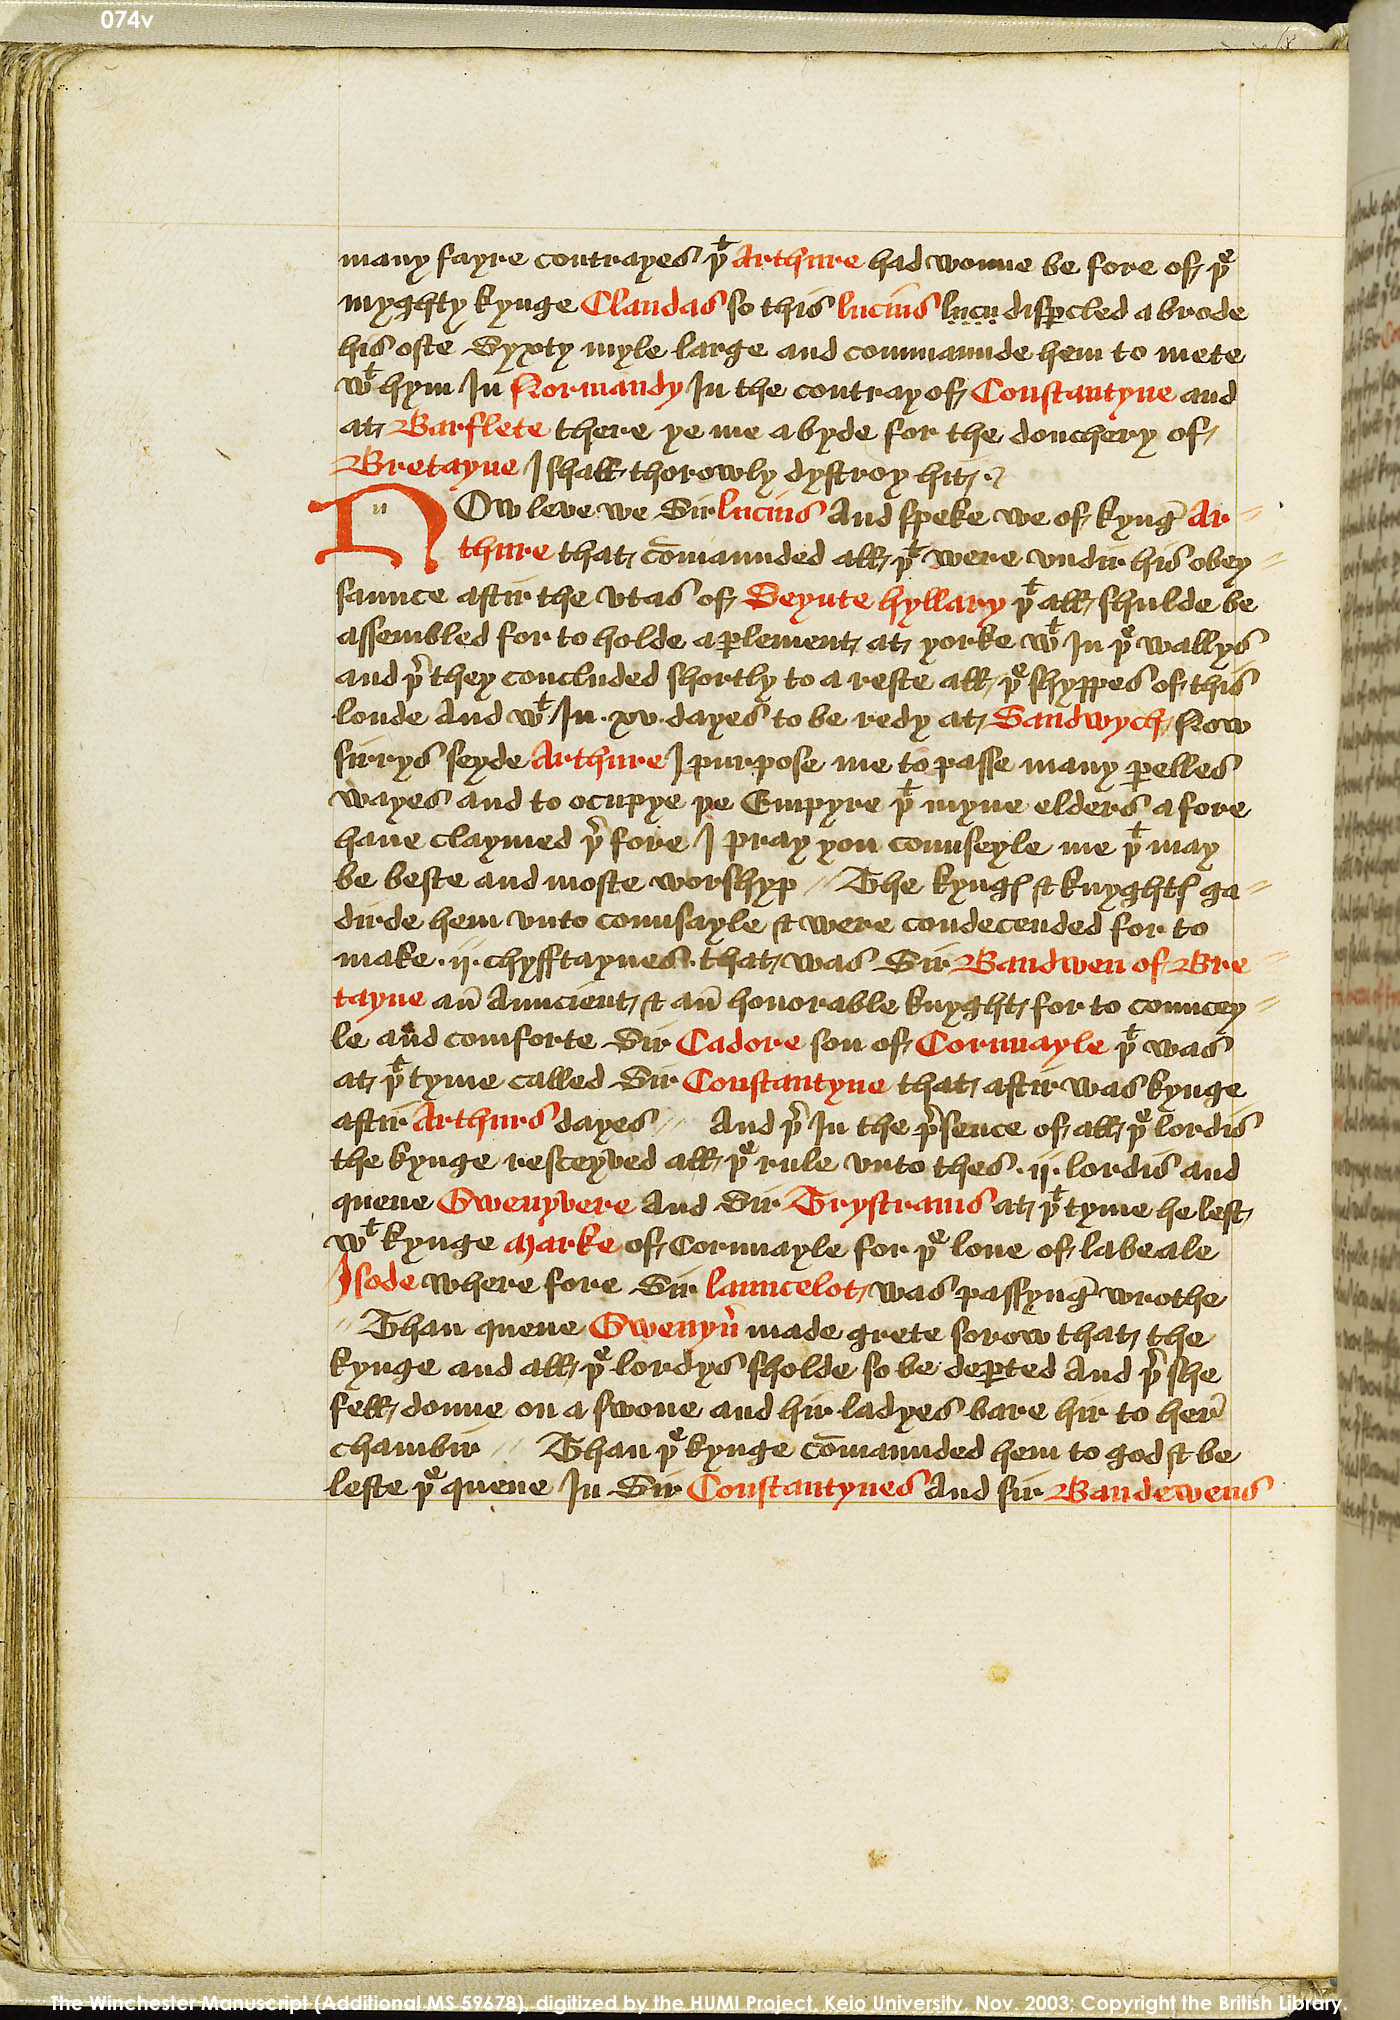 074v
many fayre contrayes þᵗ Arthure had wonne be fore of þᵉ
myghty kynge Claudas so this lucius lucu disꝑcled abrode
his oste Syxty myle large and commaunde hem to mete
wᵗ hym In Normandy In the contray of Constantyne and
at Barflete there ye me abyde for the douchery of
Bretayne I shall thorowly dystroy hit
N Ow leve we Sir lucius And speke we of kyng̃ Ar
thure that cōmaunded all þᵗ were vndir his obey
saunce aftir the vtas of Seynte hyllary þᵗ all shulde be
assembled for to holde a ꝑlement at yorke wᵗ In þᵉ wallys
and þʳ they concluded shortly to a reste all þᵉ shyppes of this
londe And wᵗ In .xv. dayes to be redy at Sandwych Now
sirrys seyde Arthure I purpose me to passe many ꝑelles
wayes and to ocupye þe Empyre þᵗ myne elders afore
haue claymed þʳ fore I pray you counseyle me þᵗ may
be beste and moste worshyp // The kyngꝭ & knyghtꝭ ga
dirde hem vnto counsayle & were condecended for to
make .ij. chyfftaynes that was Sir Baudwen of Bre
tayne añ Auncient & añ honorable knyght for to councey
le and comforte Sir Cadore son of Cornuayle þᵗ was
at þᵗ tyme called Sir Constantyne that aftir was kynge
aftir Arthurs dayes // And þʳ In the p̃sence of all þᵉ lordis
the kynge resceyved all þᵉ rule vnto thes .ij. lordis and
quene Gwenyvere And Sir Trystrams at þᵗ tyme he left
wᵗ kynge Marke of Cornuayle for þᵉ love of labeale
Isode where fore Sir launcelot was passyng̃ wrothe
// Than quene Gwenyũ made grete sorow that the
kynge and all þᵉ lordys sholde so be deꝑted And þʳ she
fell donne on a swone and hir ladyes bare hir to her̃
chambir // Than þᵉ kynge cōmaunded hem to god & be
lefte þᵉ quene In Sir Constantynes And sir Baudewens
The Winchester Manuscript (Additional MS 59678), digitized by the HUMI Project, Keio University, Nov. 2003; Copyright the British Library.